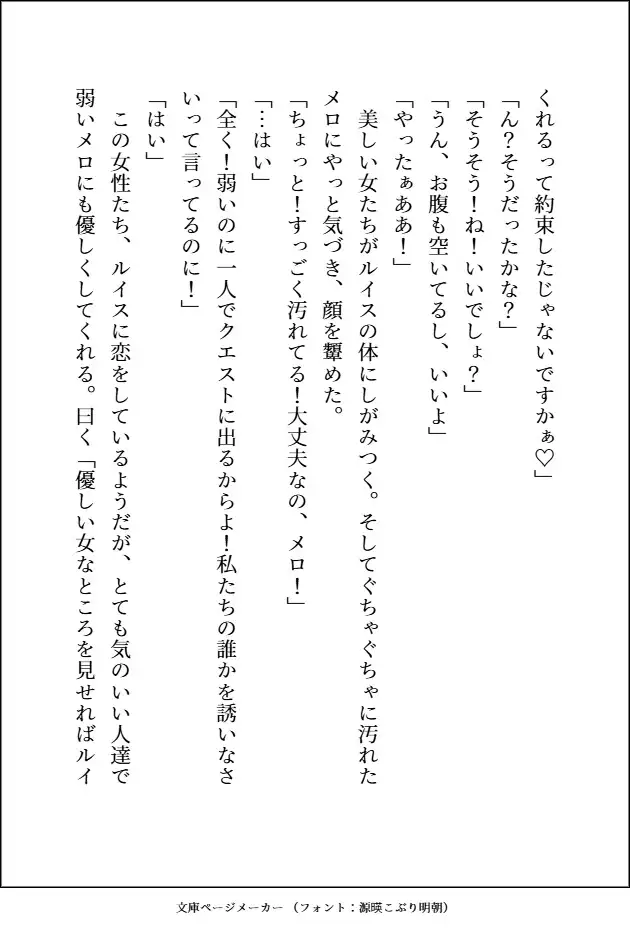 くれるって約束したじゃないですかぁ♡」
「ん?そうだったかな?」
「そうそう!ね!いいでしょ?」
「うん、お腹も空いてるし、いいよ」
「やったぁああ!」
　美しい女たちがルイスの体にしがみつく。そしてぐちゃぐちゃに汚れた
メロにやっと気づき、顔を顰めた。
「ちょっと!すっごく汚れてる!大丈夫なの、メロ!」
「…はい」
「全く!弱いのに一人でクエストに出るからよ!私たちの誰かを誘いなさ
いって言ってるのに!」
「はい」
　この女性たち、ルイスに恋をしているようだが、とても気のいい人達で
弱いメロにも優しくしてくれる。曰く「優しい女なところを見せればルイ
文庫ページメーカー（フォント：源暎こぶり明朝）